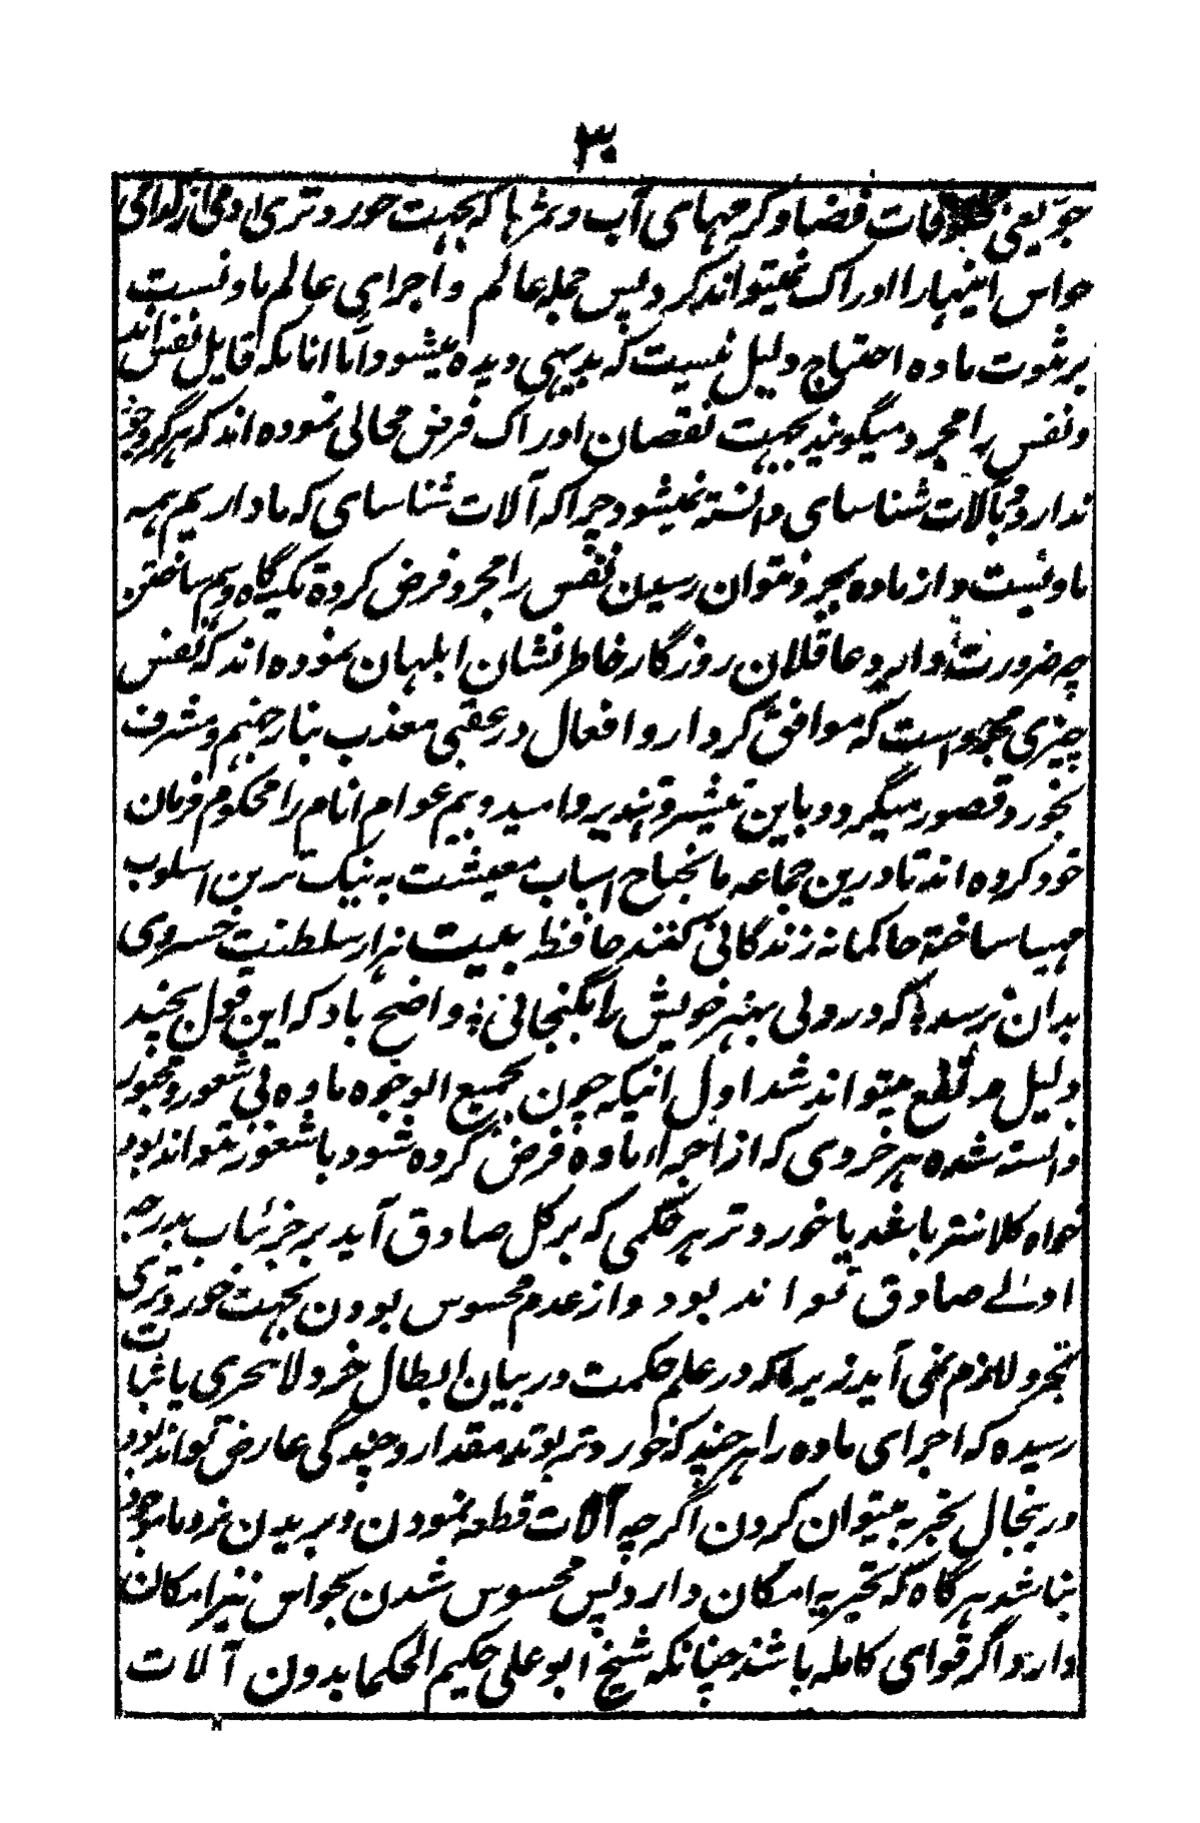 ۳۰
جو یعنی مخلوقات فضا و کرمهای آب و ثمرها که بجهت خوردتری اوفی از لوای
حواس اینها را ادراک نمیتواند کرد پس جمله عالم و اجرای عالم مادیست
بر ثبوت ماده احتیاج دلیل نیست که بدیهی دیده میشود و اما انانکه قایل نفس اند
و نفس را مجرد میگویند بجهت نقصان ادراک فرض محالی نموده اند که هرگز وجود
ندارد و بآلات شناسای دانسته نمیشود چرا که آلات شناسای که ما داریم همه
مادیست و از ماده بمجرد نتوان رسید نفس را مجرد فرض کرده تکیه گاه وهم ساختن
چه ضرورت دارد و عاقلان روزگار خاطر نشان ابلهان نموده اند که نفس
چیزی مجرد است که موافق کردار و افعال در عقبی معذب بنار جهنم و مشرف
بحور و قصور میگردد و باین تبشیر و تهدیر و امید و بیم عوام انام را محکوم فرمان
خود کرده اند تا درین جماعه مانجباح اسباب معیشت به نیک ترین اسلوب
مهیا ساخته حاکمانه زندگانی کنند حافظ بیت هزار سلطنت خسروی
بدان نرسد که در دلی بهنر خویش را بگنجانی واضح باد که این قول بچند
دلیل مدلقطع میتواند شد اول انیکه چون بجمیع الوجوه ماده بی شعور و مجبور
دانسته شده هر خردی که از اجراء ماده فرض کرده شود باشعور نتواند بود
خواه کلانتر باشد یا خوردتر هر حکمی که بر کل صادق آید بر جزئیات بدرجه
اولے صادق تواند بود و از عدم محسوس بودن بجهت خوردتری
تجرد لازم نمی آید زیرا که در علم حکمت در بیان ابطال خرد لا یتحری باثبات
رسیده که اجرای ماده را هر چند که خوردتر بوند مقدار و چندگی عارض تواند بود
درینحال تجربه میتوان کردن اگرچه آلات قطعه نمودن و بریدن نزد ما موجود
نباشد هر گاه که تجربه امکان دارد پس محسوس شدن بحواس نیز امکان
دارد و اگر قوای کامله باشد چنانکه شیخ ابو علی حکیم الحکما بدون آلات